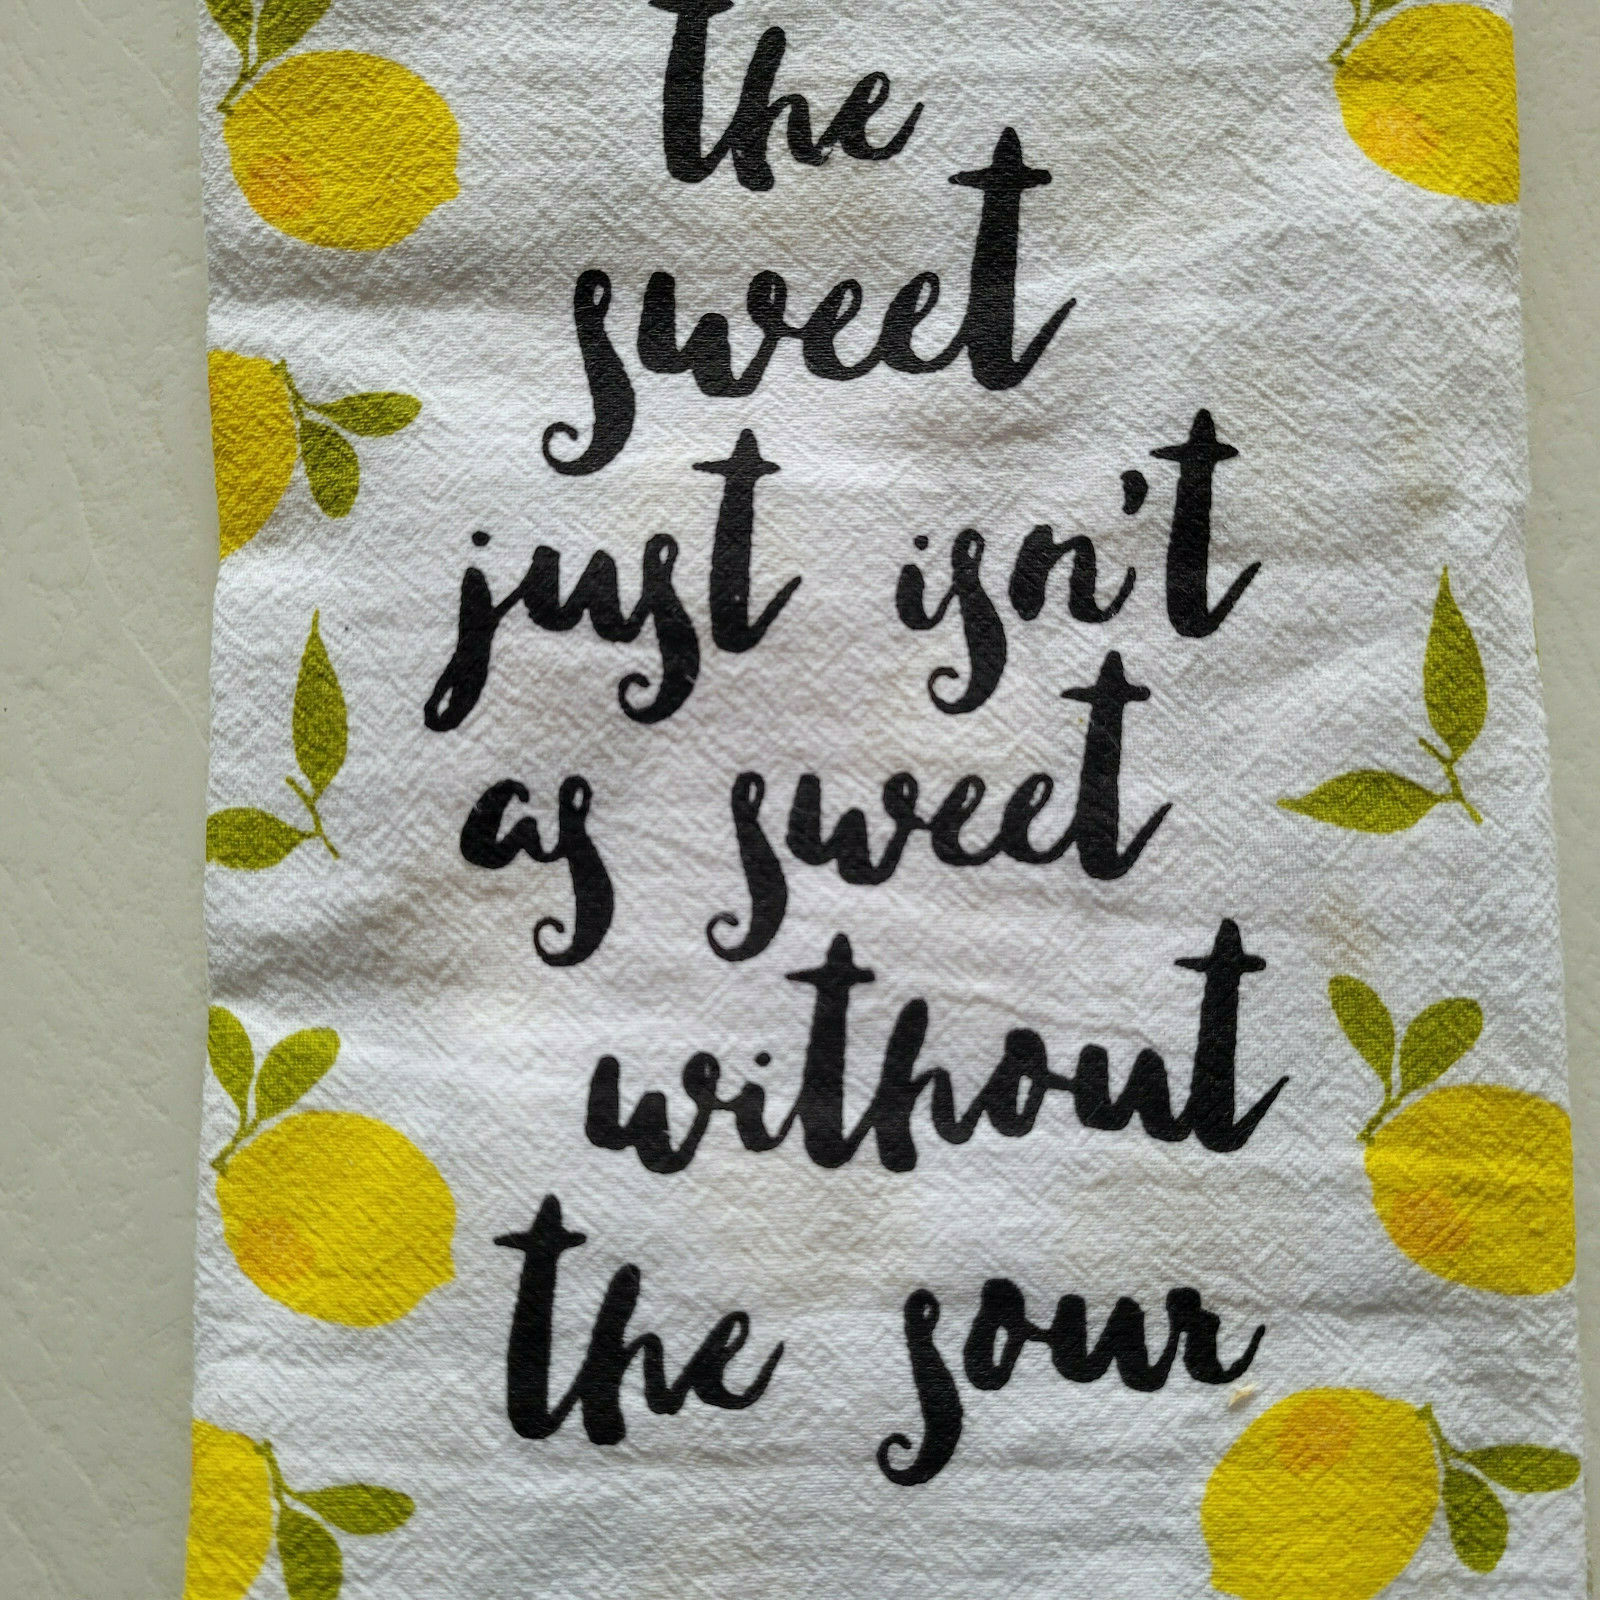 the
sweet
just isn't
as sweet
without
the sour